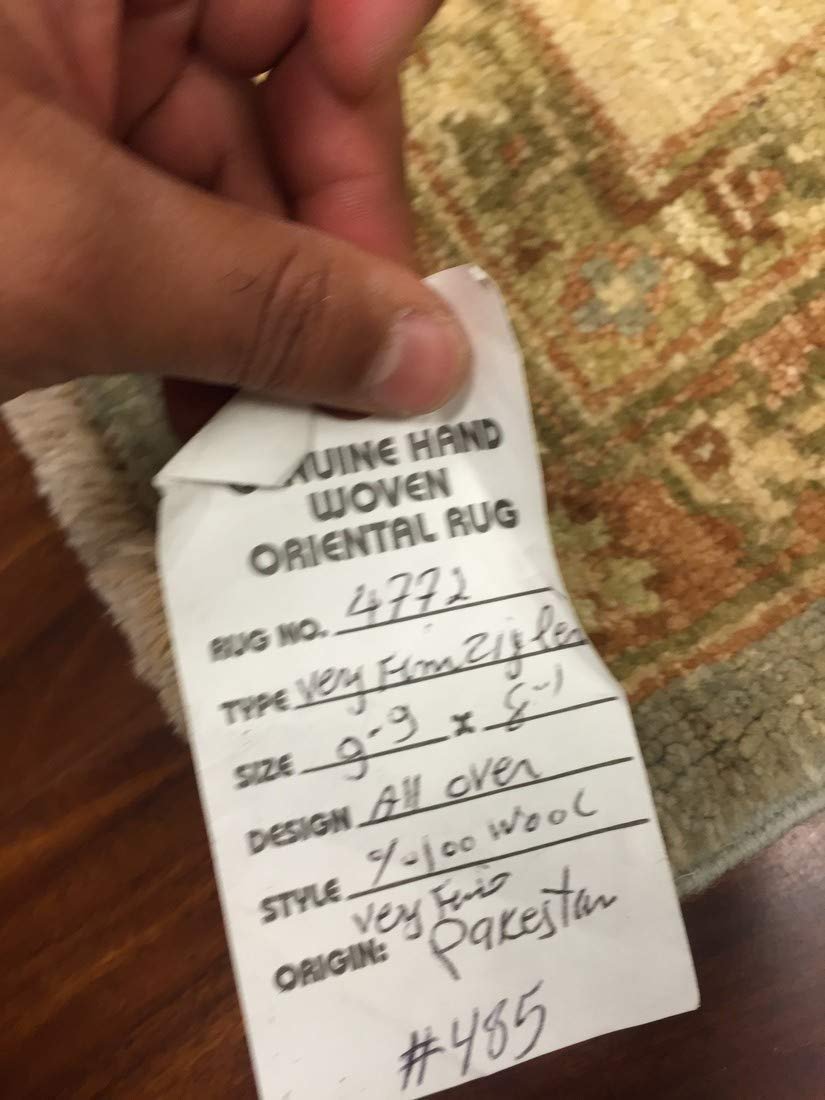 NUINE HAND
WOVEN
ORIENTAL RUG
RUG NO. 4772
TYPE Very Fine Zigler
SIZE 9-9 x 8-1
DESIGN All over
STYLE %100 WOOL
very Fine
ORIGIN: Pakestan
#485